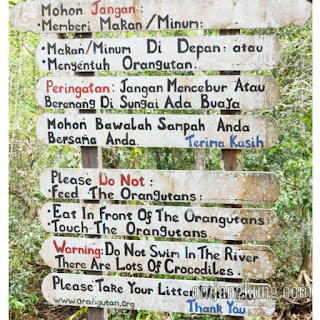 Mohon Jangan:
• Memberi Makan/Minum:
• Makan/Minum Di Depan atau
• Menyentuh Orangutan.
Peringatan: Jangan Mencebur Atau
Berenang Di Sungai Ada Buaya
Mohon Bawalah Sampah Anda
Bersama Anda. Terima Kasih
Please Do Not:
• Feed The Orangutans:
• Eat In Front Of The Orangutans
• Touch The Orangutans
Warning: Do Not Swim In The River
There Are Lots Of Crocodiles.
Please Take Your Litter
www.orangutan.org Thank You